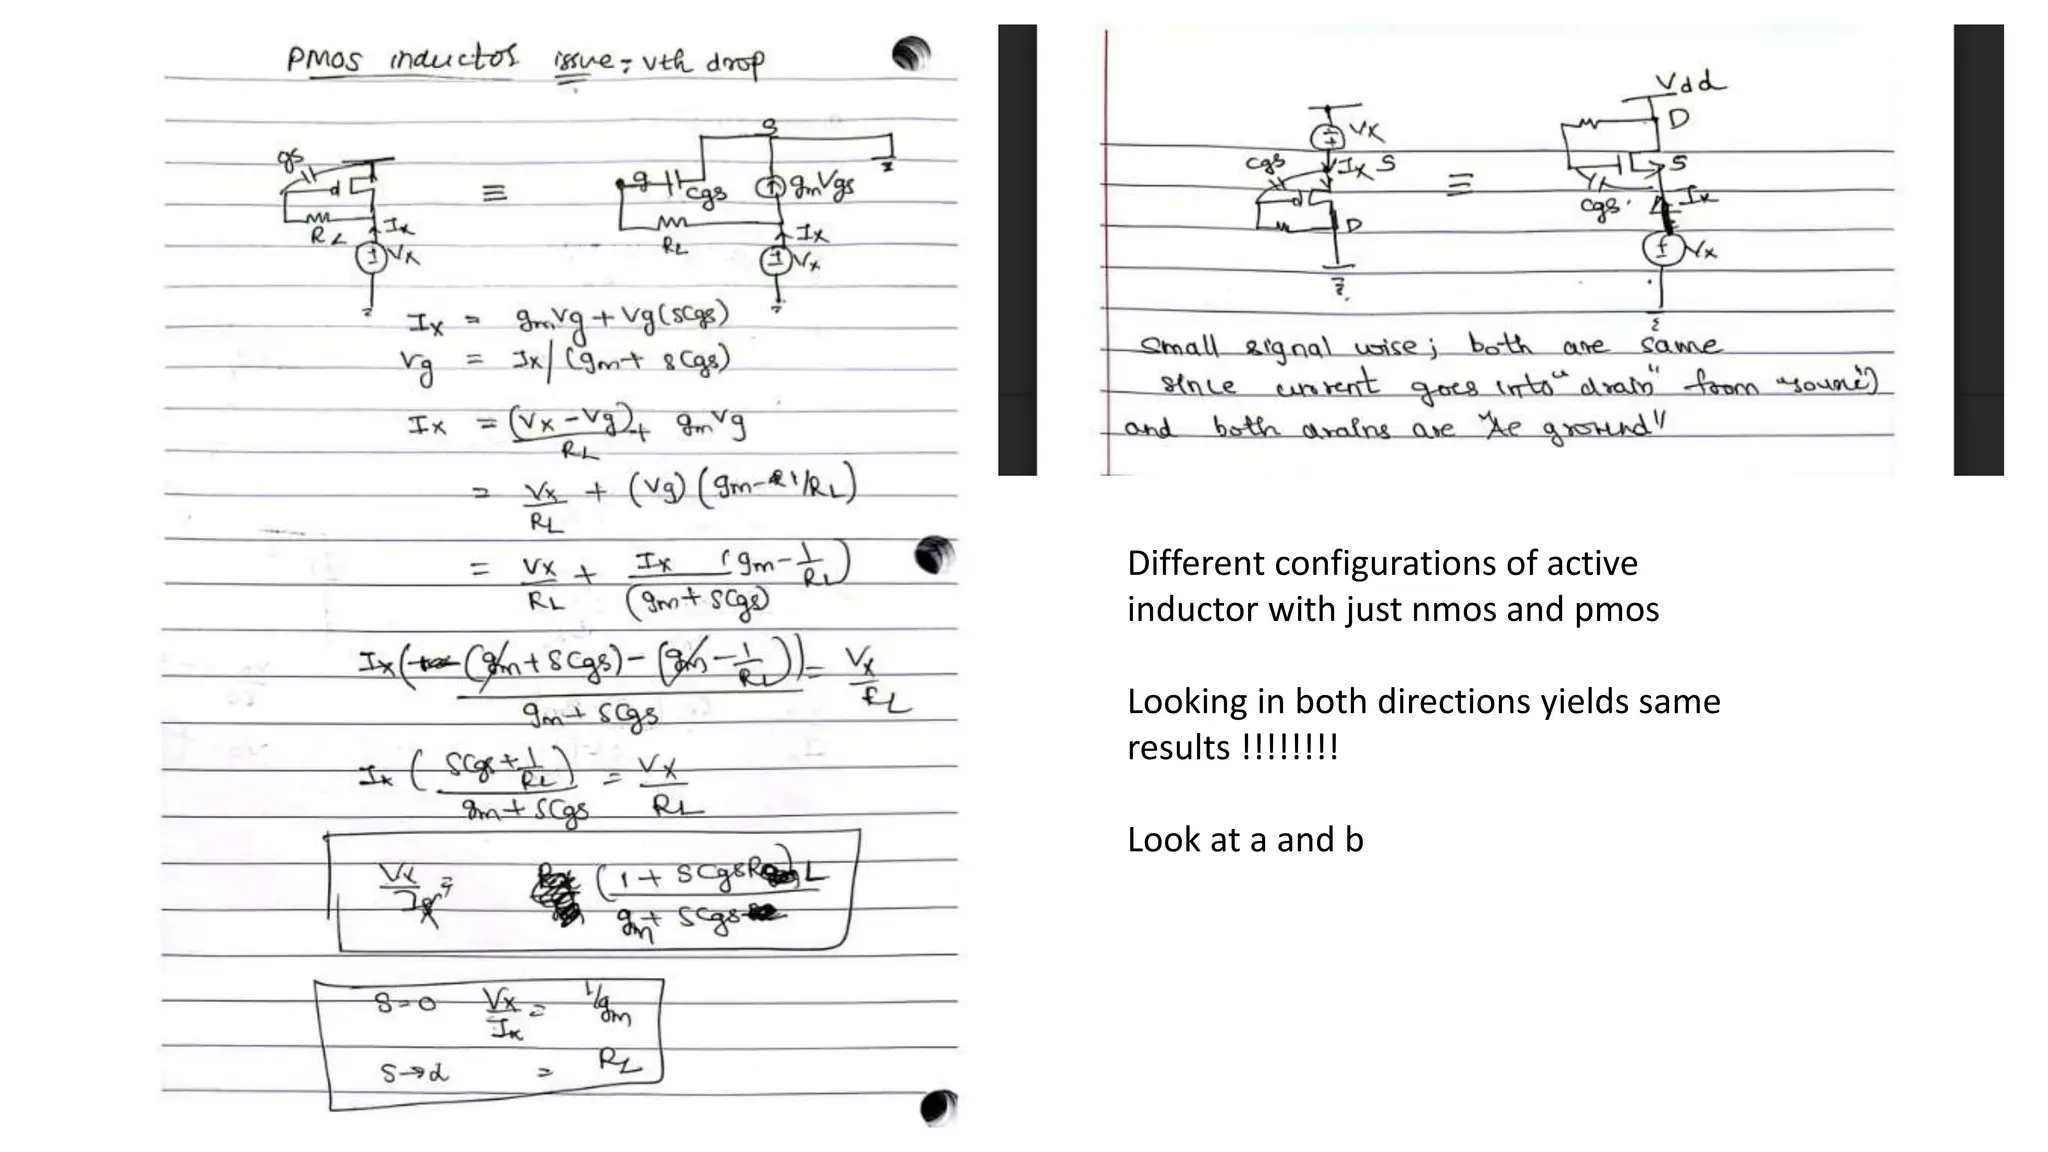 PMOS inductor issue; vth drop
gs
d
RL
Ix
Vx
≡
S
g
cgs
gmVgs
RL
Ix
Vx
Ix = gmVg + Vg(SCgs)
Vg = Ix/(gm + sCgs)
Ix = (Vx - Vg)/RL + gmVg
= Vx/RL + (Vg)(gm - 1/RL)
= Vx/RL + Ix/(gm + SCgs) (gm - 1/RL)
Ix((gm + SCgs) - (gm - 1/RL))/(gm + SCgs) = Vx/RL
Ix(SCgs + 1/RL)/(gm + SCgs) = Vx/RL
Vx/Ix = (1 + SCgsRL)/(gm + SCgs)
S=0 Vx/Ix = 1/gm
S→α = RL
Vx
cgs
Ix S
D
≡
Vdd
D
S
cgs
Ix
Vx
Small signal wise; both are same
since current goes into "drain" from "source")
and both drains are "Ac ground"
Different configurations of active
inductor with just nmos and pmos
Looking in both directions yields same
results !!!!!!!!
Look at a and b